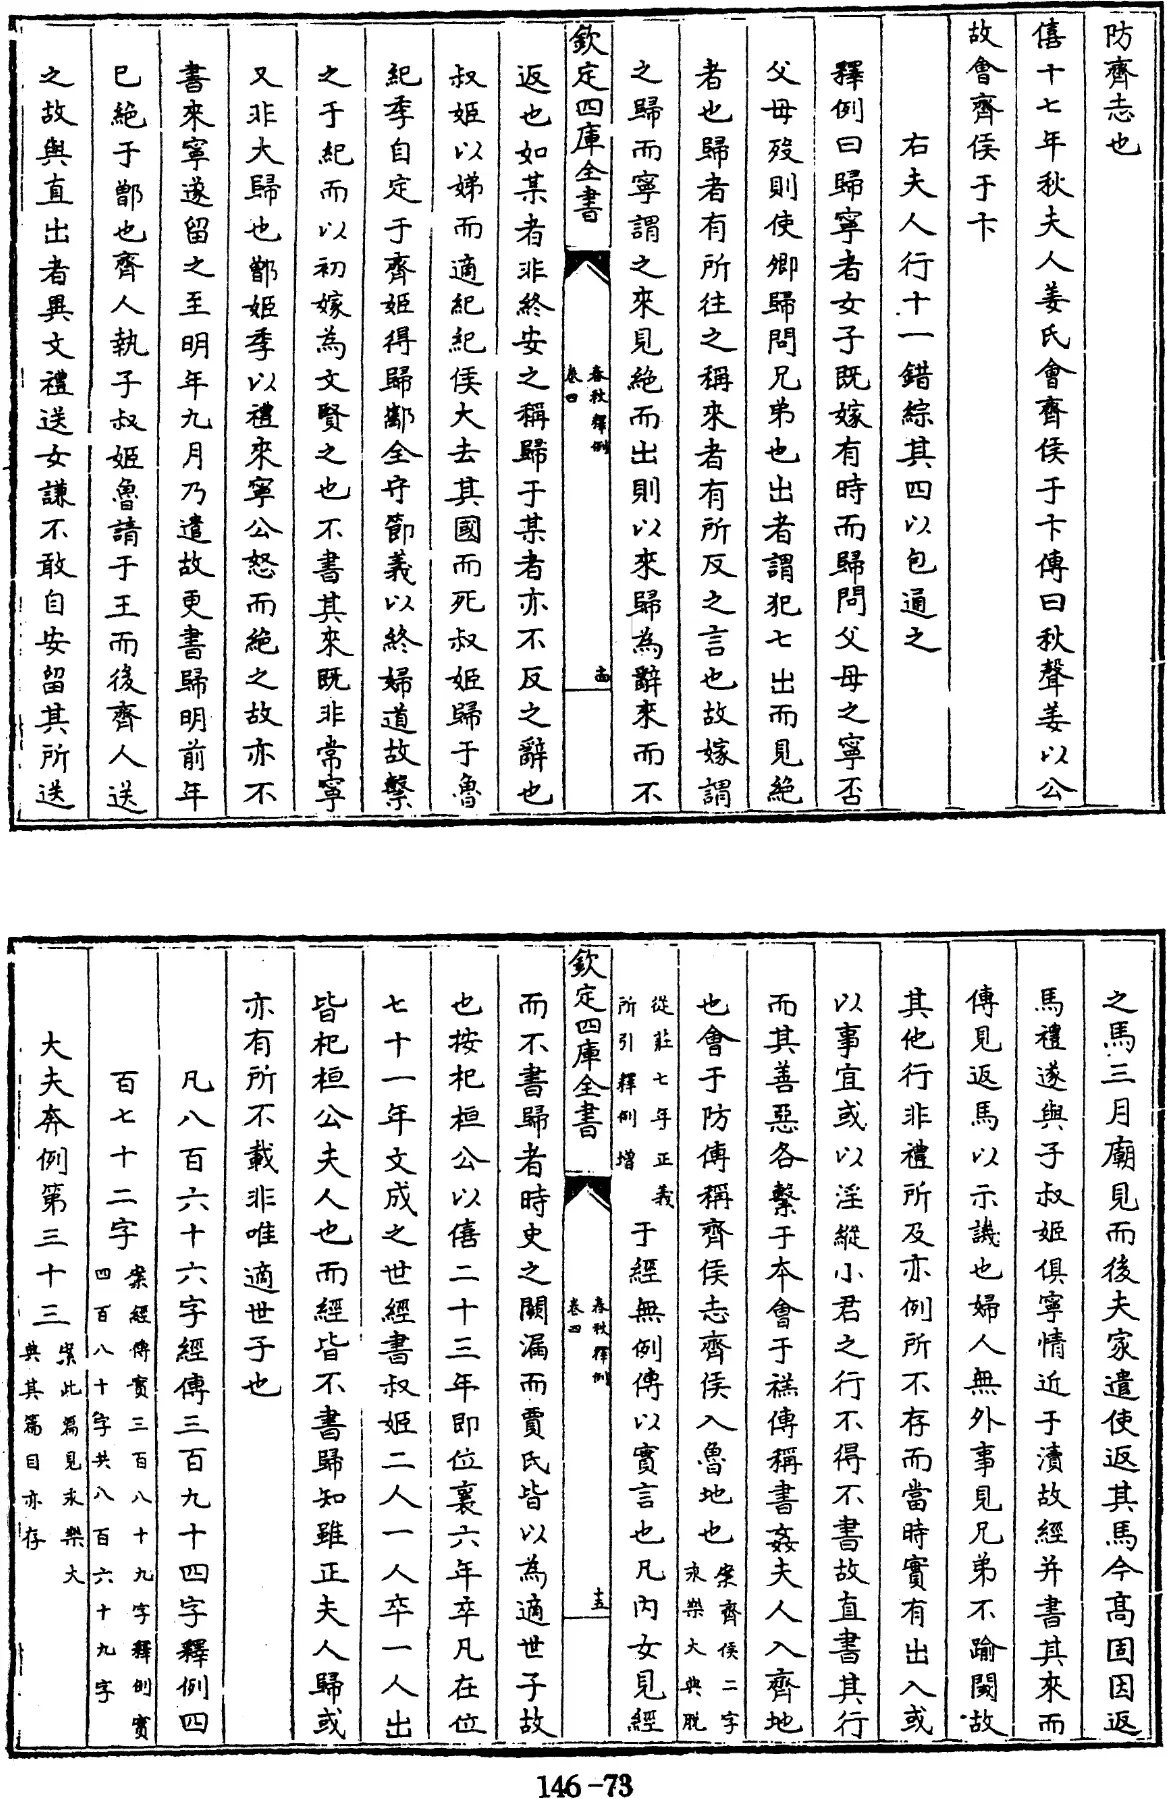 防齊志也
僖十七年秋夫人姜氏會齊侯于卞傳曰秋聲姜以公
故會齊侯于卞
右夫人行十一錯綜其四以包通之
釋例曰歸寧者女子既嫁有時而歸問父母之寧否
父母歿則使卿歸問兄弟也出者謂犯七出而見絶
者也歸者有所往之稱來者有所反之言也故嫁謂
之歸而寧謂之來見絶而出則以來歸為辭來而不
欽定四庫全書
春秋釋例
卷四
十四
返也如某者非終安之稱歸于某者亦不反之辭也
叔姬以娣而適紀紀侯大去其國而死叔姬歸于魯
紀季自定于齊姬得歸酅全守節義以終婦道故繫
之于紀而以初嫁為文賢之也不書其來既非常寧
又非大歸也鄫姬季以禮來寧公怒而絶之故亦不
書來寧遂留之至明年九月乃遣故更書歸明前年
已絶于鄫也齊人執子叔姬魯請于王而後齊人送
之故與直出者異文禮送女謙不敢自安留其所送
之馬三月廟見而後夫家遣使返其馬今髙固因返
馬禮遂與子叔姬俱寧情近于瀆故經并書其來而
傳見返馬以示譏也婦人無外事見兄弟不踰閾故
其他行非禮所及亦例所不存而當時實有出入或
以事宜或以淫縱小君之行不得不書故直書其行
而其善惡各繫于本會于禚傳稱書姦夫人入齊地
也會于防傳稱齊侯志齊侯入魯地也案齊侯二字
永樂大典脱
從莊七年正義
所引釋例增于經無例傳以實言也凡内女見經
欽定四庫全書
春秋釋例
卷四
十五
而不書歸者時史之闕漏而賈氏皆以為適世子故
也按杞桓公以僖二十三年即位襄六年卒凡在位
七十一年文成之世經書叔姬二人一人卒一人出
皆杞桓公夫人也而經皆不書歸知雖正夫人歸或
亦有所不載非唯適世子也
凡八百六十六字經傳三百九十四字釋例四
百七十二字案經傳實三百八十九字釋例實
四百八十字共八百六十九字
大夫奔例第三十三案此篇見永樂大
典其篇目亦存
146-73